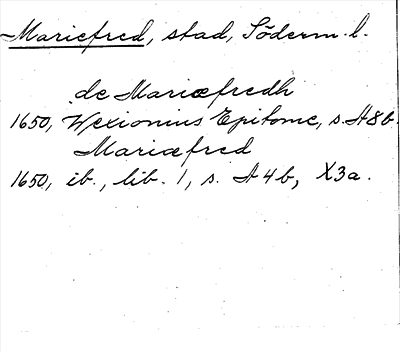 Mariefred, stad, Söderm.l.
de Mariæfredh
1650, Wexionius Epitome, s. A8b.
Mariæfred
1650, ib., lib. 1, s. A4b, X3a.